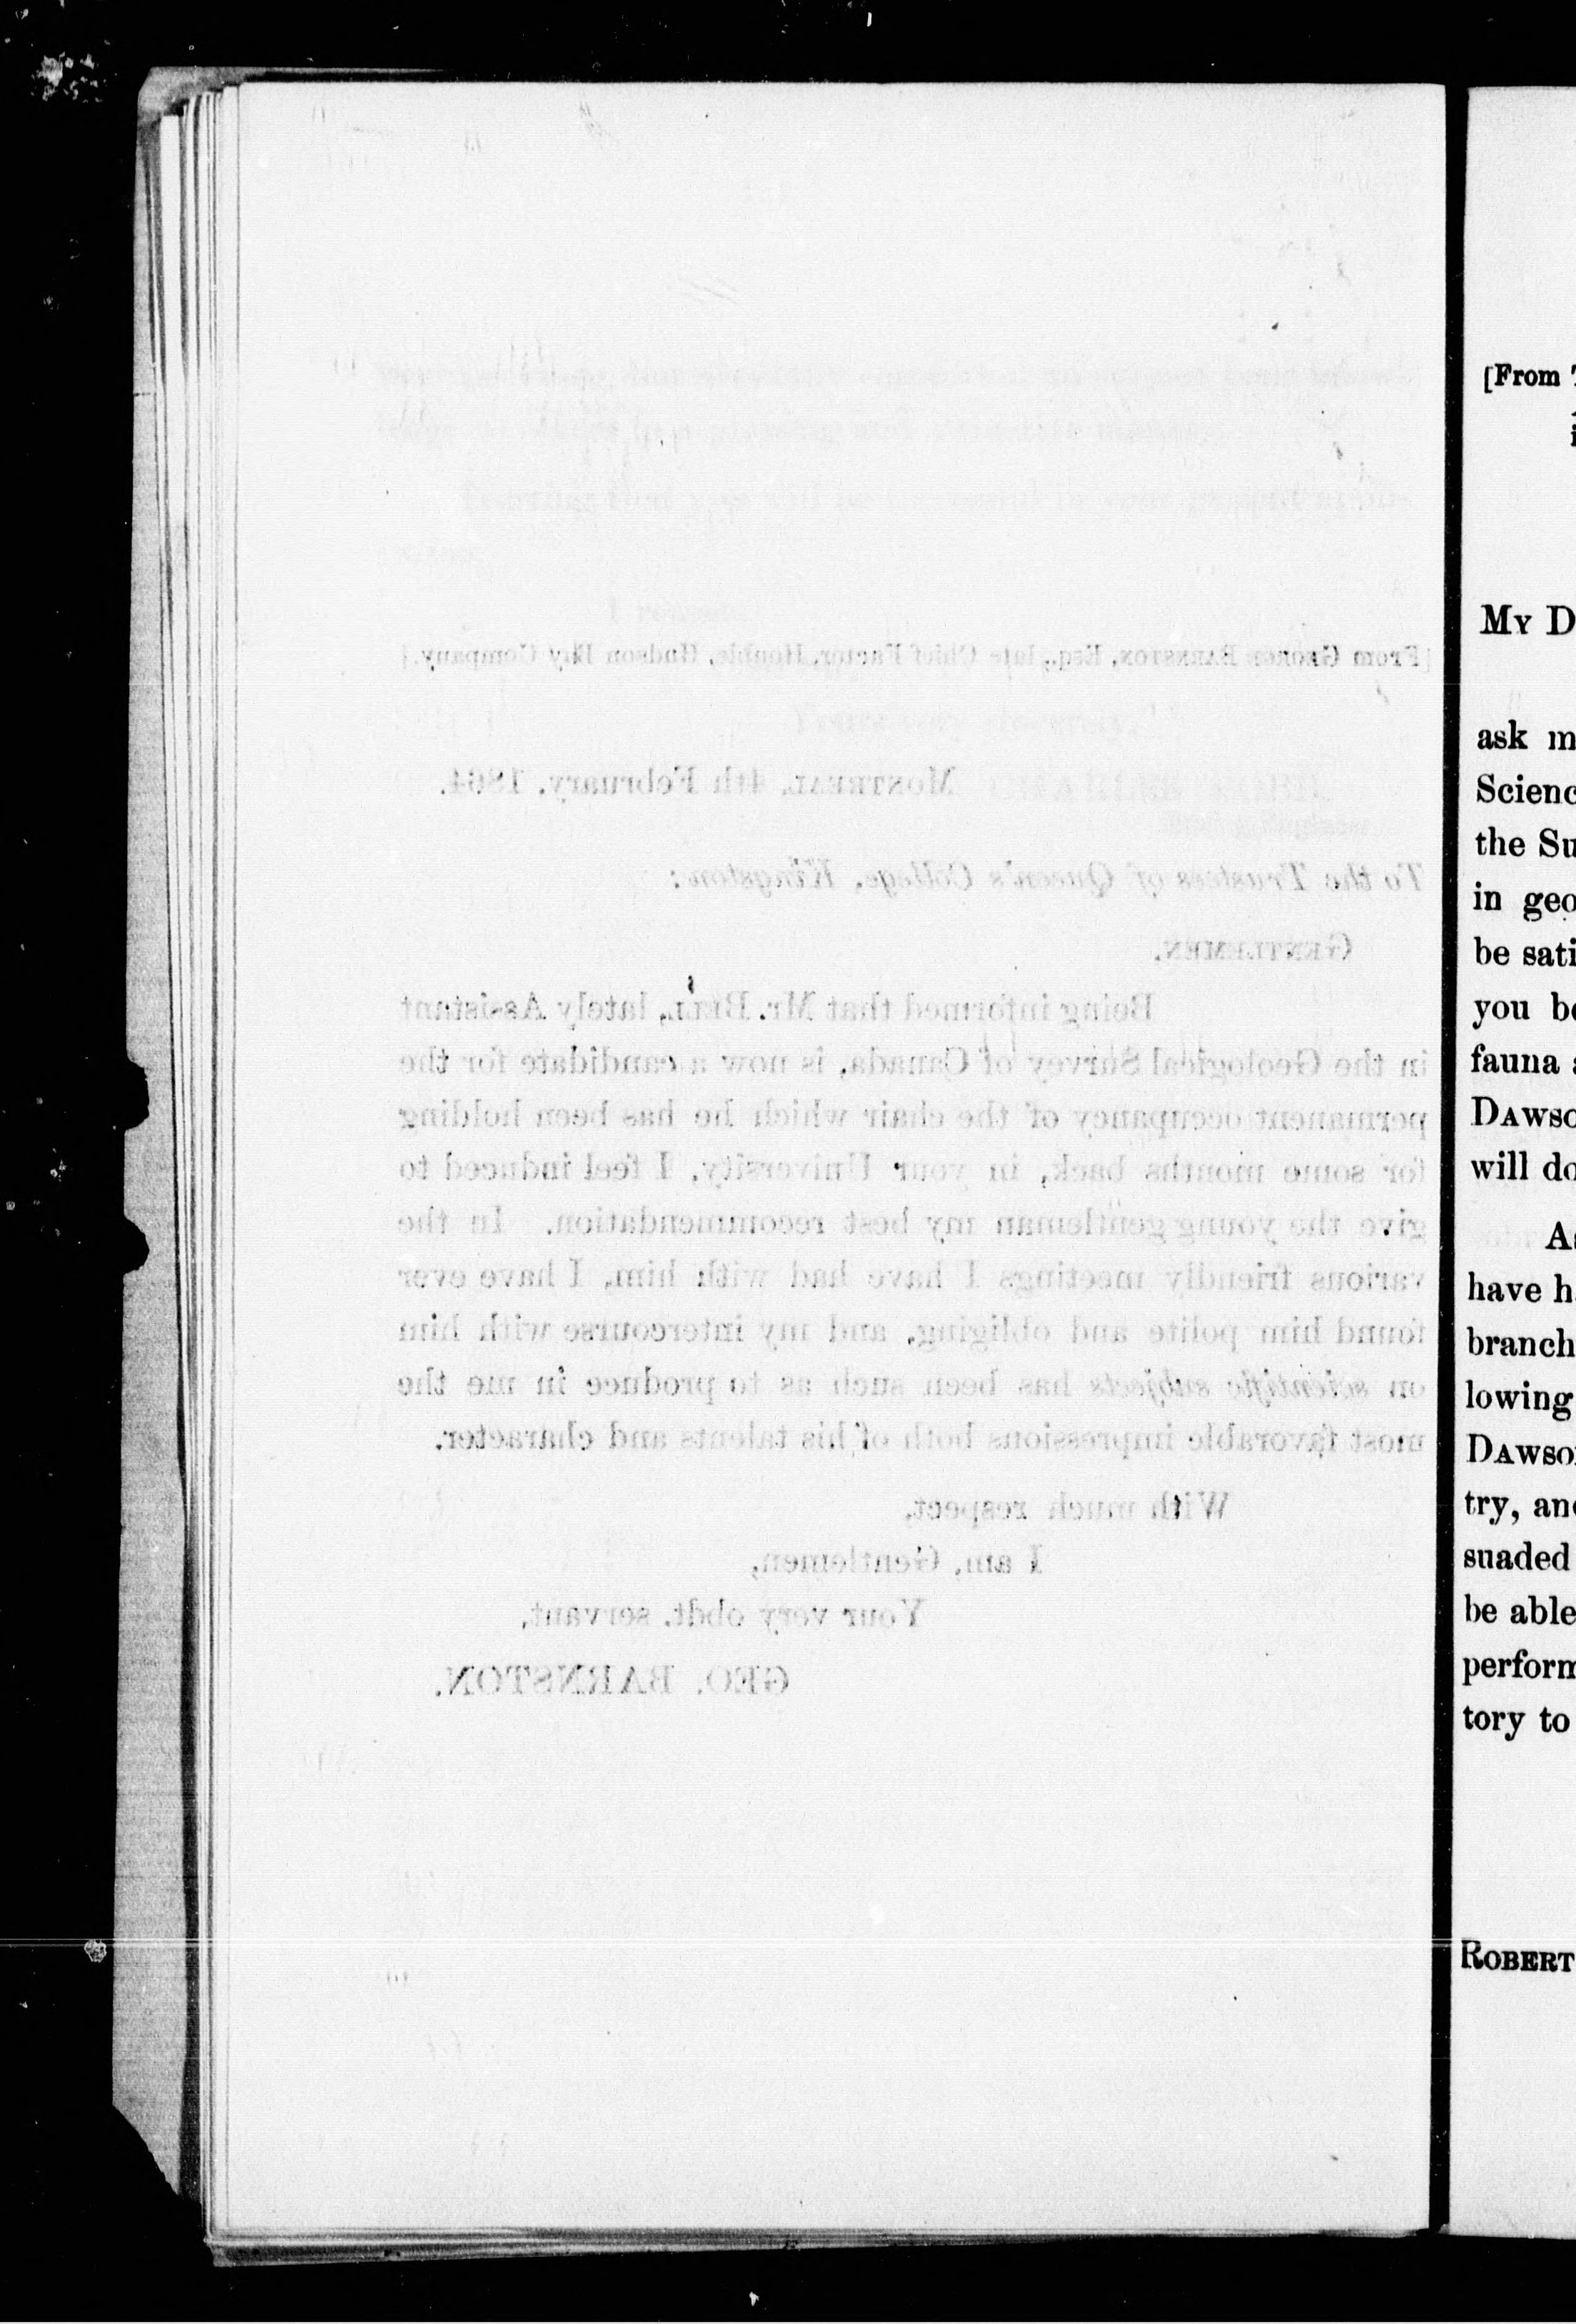 [From GEORGE BARNSTON, Esq., late Chief Factor, Honble. Hudson Bay Company.]
MONTREAL, 4th February, 1864.
To the Trustees of Queen's College, Kingston:
GENTLEMEN,
Being informed that Mr. BELL, lately Assistant
in the Geological Survey of Canada, is now a candidate for the
permanent occupancy of the chair which he has been holding
for some months back, in your University, I feel induced to
give the young gentleman my best recommendation. In the
various friendly meetings I have had with him, I have ever
found him polite and obliging, and my intercourse with him
on scientific subjects has been such as to produce in me the
most favorable impressions both of his talents and character.
With much respect,
I am, Gentlemen,
Your very obdt. servant,
GEO. BARNSTON.
[From
MY D
ask m
Scienc
the Su
in geo
be sati
you be
fauna
DAWSO
will do
As
have h
branch
lowing
DAWSO
try, an
suaded
be able
perform
tory to
ROBERT